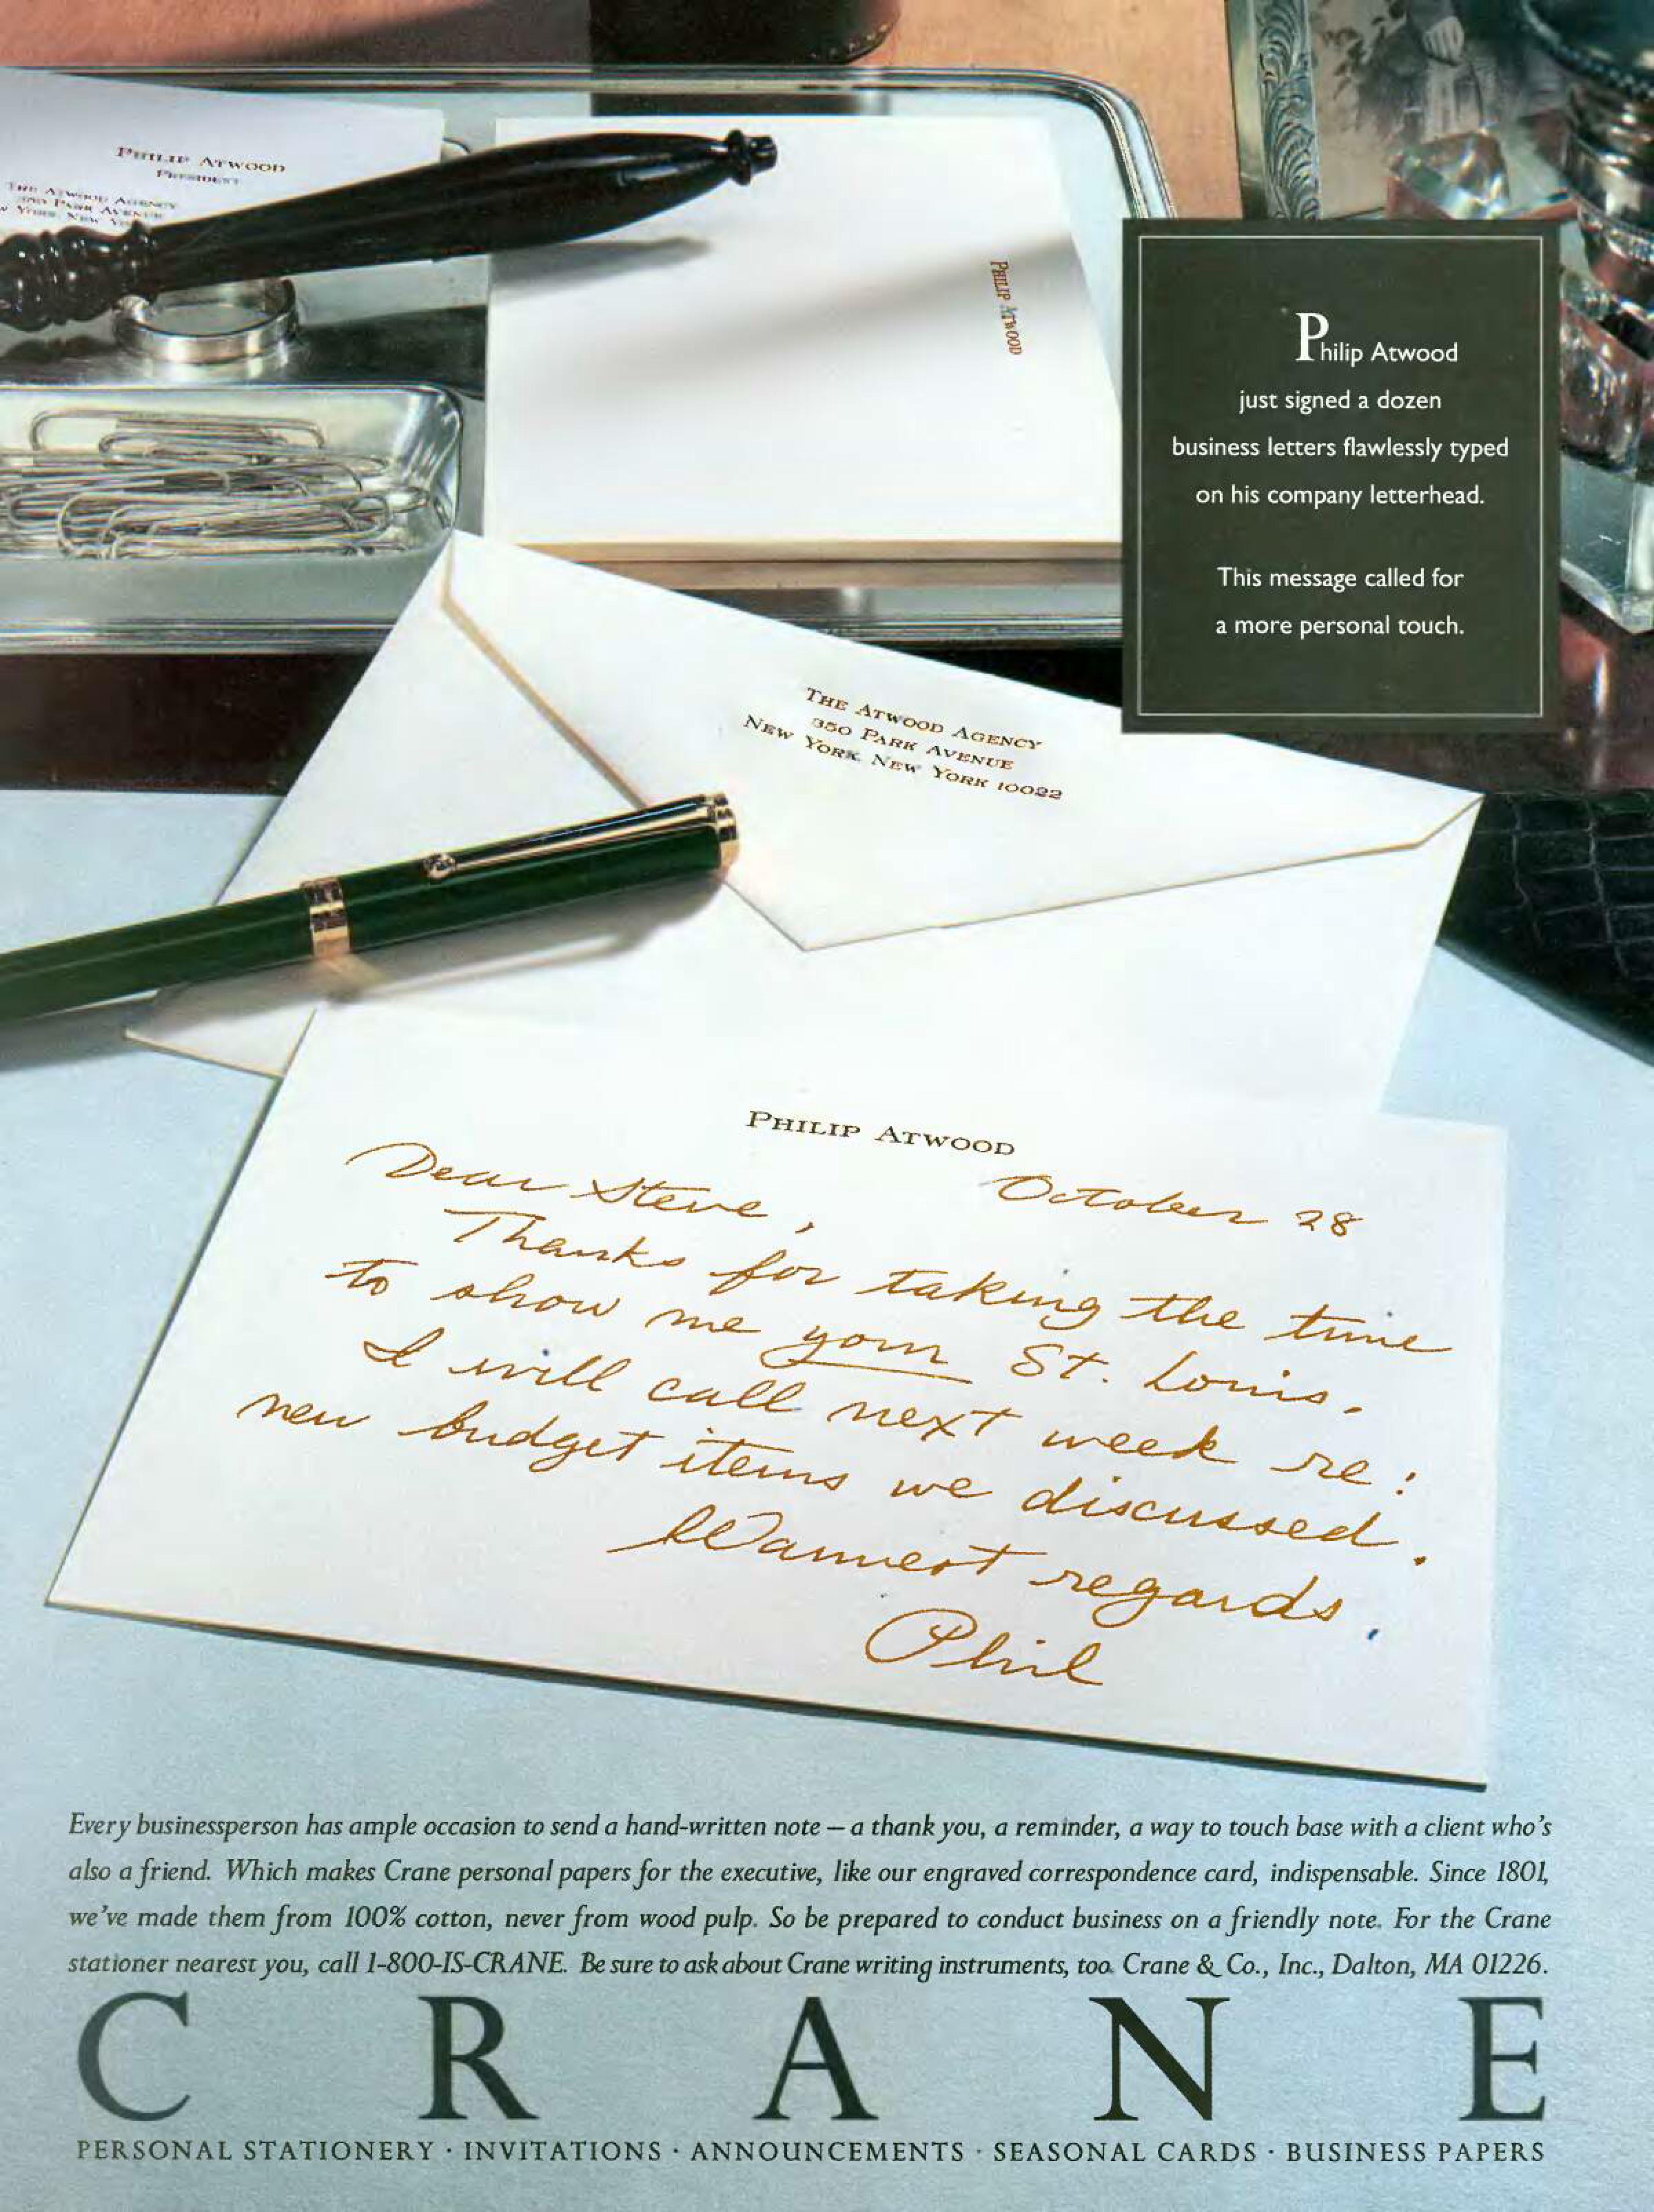 PHILIP ATWOOD
PRESIDENT
THE ATWOOD AGENCY
350 PARK AVENUE
PHILIP ATWOOD
Philip Atwood
just signed a dozen
business letters flawlessly typed
on his company letterhead.
This message called for
a more personal touch.
THE ATWOOD AGENCY
350 PARK AVENUE
NEW YORK, NEW YORK 10022
PHILIP ATWOOD
October 28
Dear Steve,
Thanks for taking the time
to show me your St. Louis.
I will call next week re:
new budget items we discussed.
Warmest regards,
Phil
Every businessperson has ample occasion to send a hand-written note – a thank you, a reminder, a way to touch base with a client who's
also a friend. Which makes Crane personal papers for the executive, like our engraved correspondence card, indispensable. Since 1801,
we've made them from 100% cotton, never from wood pulp. So be prepared to conduct business on a friendly note. For the Crane
stationer nearest you, call 1-800-IS-CRANE. Be sure to ask about Crane writing instruments, too. Crane & Co., Inc., Dalton, MA 01226.
CRANE
PERSONAL STATIONERY · INVITATIONS · ANNOUNCEMENTS · SEASONAL CARDS · BUSINESS PAPERS